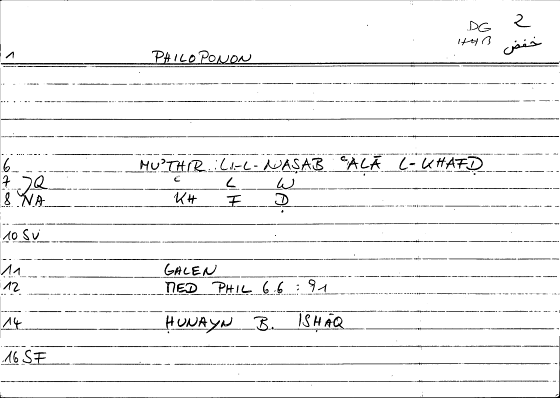 DG 2
HHB خفض
1 PHILOPONON
6 MU'THIR LI-L-NAṢAB ʿALĀ L-KHAFḌ
7 JQ ʿ L W
8 NA KH F Ḍ
10 SV
11 GALEN
12 MED PHIL 6.6 : 91
14 ḤUNAYN B. ISḤĀQ
16 SF